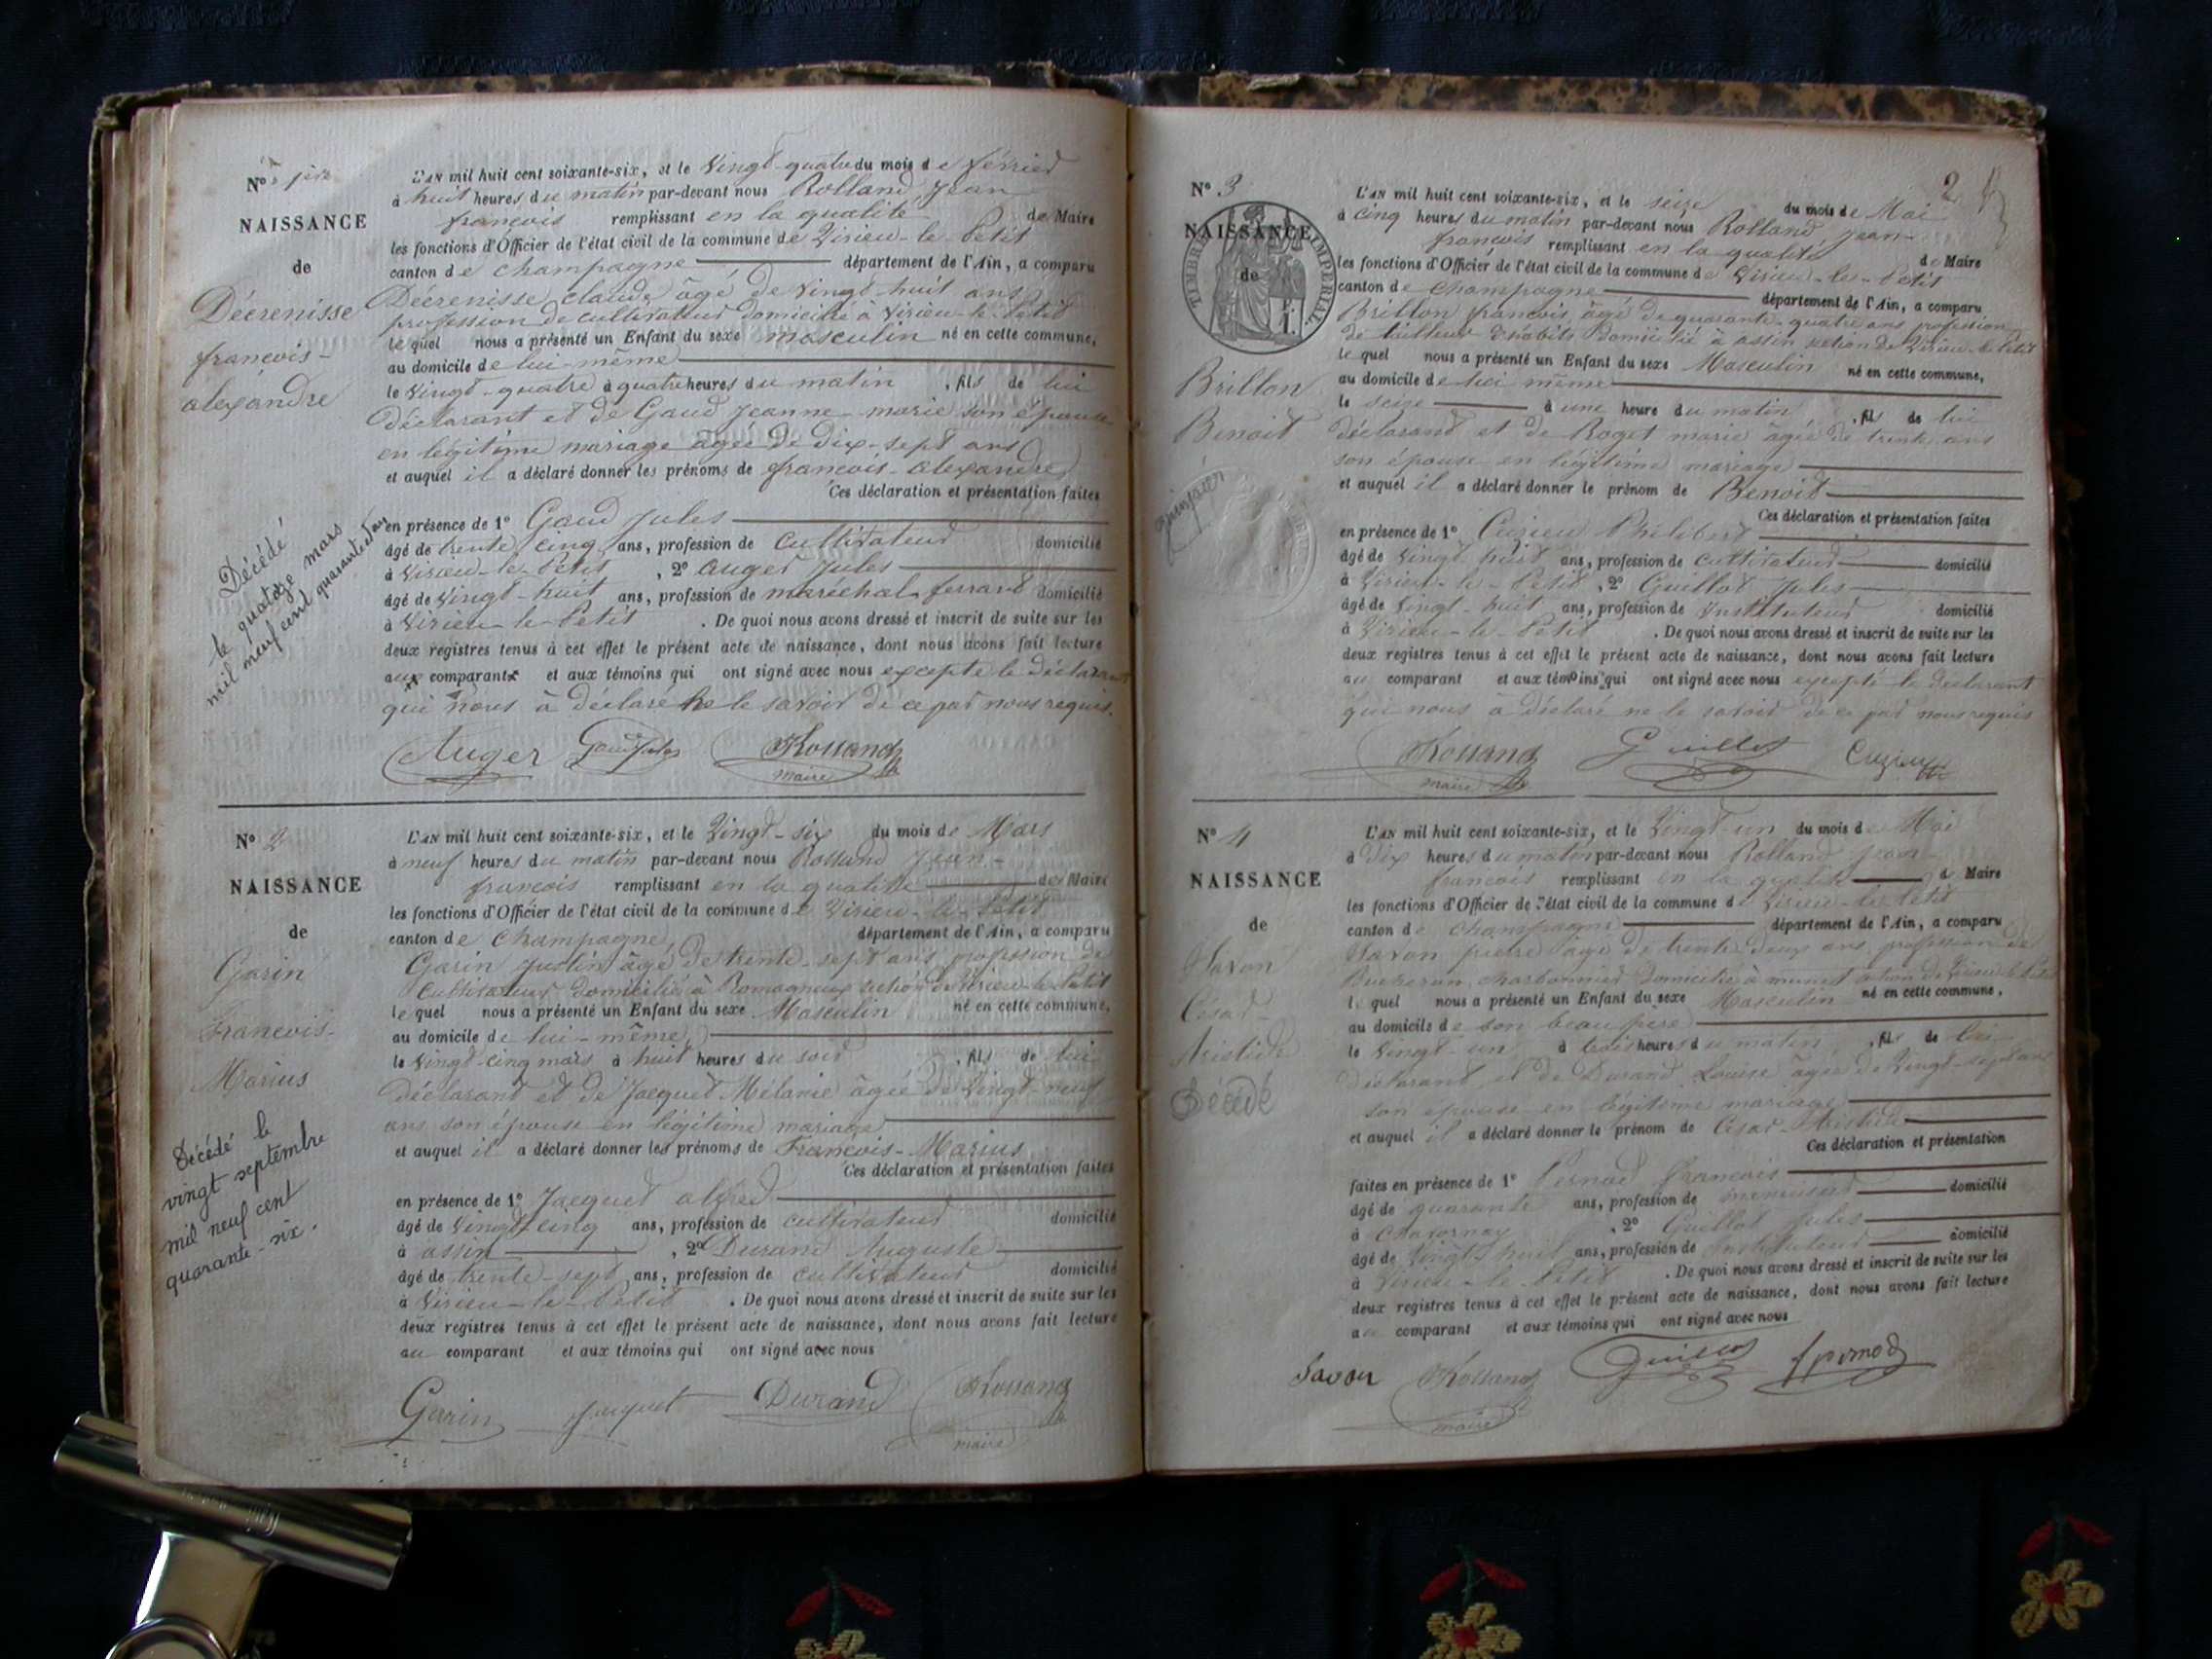 N° 1er
NAISSANCE
de
Décrenisse
françois-
alexandre
Décédé
le quatorze mars
mil neuf cent quarante
L'AN mil huit cent soixante-six, et le Vingt-quatre du mois de février
à huit heures du matin par-devant nous Rolland Jean
françois remplissant en la qualité de Maire
les fonctions d'Officier de l'état civil de la commune de Virieu-le-Petit
canton de Champagne département de l'Ain, a comparu
Décrenisse claude âgé de vingt-huit ans
profession de cultivateur domicilié à Virieu-le-Petit
lequel nous a présenté un Enfant du sexe masculin né en cette commune,
au domicile de lui-même
le vingt-quatre à quatre heures du matin, fils de lui
déclarant et de Gaud Jeanne-marie son épouse
en légitime mariage âgée de dix-sept ans
et auquel il a déclaré donner les prénoms de françois-alexandre
Ces déclaration et présentation faites
en présence de 1° Gaud Jules
âgé de trente cinq ans, profession de cultivateur domicilié
à Virieu-le-Petit, 2° Auger Jules
âgé de vingt-huit ans, profession de maréchal ferrant domicilié
à Virieu-le-Petit. De quoi nous avons dressé et inscrit de suite sur les
deux registres tenus à cet effet le présent acte de naissance, dont nous avons fait lecture
aux comparants et aux témoins qui ont signé avec nous excepté le déclarant
qui nous à déclaré ne le savoir de ce par nous requis.
Auger Gaud Jules Rolland
maire
N° 2
NAISSANCE
de
Garin
Francois-
Marius
Décédé le
vingt septembre
mil neuf cent
quarante-six.
L'AN mil huit cent soixante-six, et le Vingt-six du mois de Mars
à neuf heures du matin par-devant nous Rolland Jean-
françois remplissant en la qualité de Maire
les fonctions d'Officier de l'état civil de la commune de Virieu-le-Petit
canton de Champagne département de l'Ain, a comparu
Garin Justin âgé de trente-sept ans profession de
cultivateur domicilié à Romagneux section de Virieu-le-Petit
lequel nous a présenté un Enfant du sexe Masculin né en cette commune,
au domicile de lui-même
le vingt-cinq mars à huit heures du soir, fils de lui
déclarant et de Jacquet Mélanie âgée de vingt-neuf
ans son épouse en légitime mariage
et auquel il a déclaré donner les prénoms de Francois-Marius
Ces déclaration et présentation faites
en présence de 1° Jacquet alfred
âgé de vingt-cinq ans, profession de cultivateur domicilié
à assin, 2° Durand Auguste
âgé de trente-sept ans, profession de cultivateur domicilié
à Virieu-le-Petit. De quoi nous avons dressé et inscrit de suite sur les
deux registres tenus à cet effet le présent acte de naissance, dont nous avons fait lecture
au comparant et aux témoins qui ont signé avec nous
Garin Jacquet Durand Rolland
maire
2
N° 3
NAISSANCE
de
TIMBRE IMPÉRIAL
Brillon
Benoit
L'AN mil huit cent soixante-six, et le seize du mois de Mai
à cinq heures du matin par-devant nous Rolland Jean-
françois remplissant en la qualité de Maire
les fonctions d'Officier de l'état civil de la commune de Virieu-le-Petit
canton de Champagne département de l'Ain, a comparu
Brillon francois âgé de quarante-quatre ans profession
de tailleur d'habits domicilié à assin section de Virieu-le-Petit
lequel nous a présenté un Enfant du sexe Masculin né en cette commune,
au domicile de lui même
le seize à une heure du matin, fils de lui
déclarant et de Roget marie âgée de trente ans
son épouse en légitime mariage
et auquel il a déclaré donner le prénom de Benoit
Ces déclaration et présentation faites
en présence de 1° Cuzieu Philibert
âgé de vingt huit ans, profession de cultivateur domicilié
à Virieu-le-Petit, 2° Guillot Jules
âgé de vingt-huit ans, profession de Instituteur domicilié
à Virieu-le-Petit. De quoi nous avons dressé et inscrit de suite sur les
deux registres tenus à cet effet le présent acte de naissance, dont nous avons fait lecture
au comparant et aux témoins qui ont signé avec nous excepté le déclarant
qui nous à déclaré ne le savoir de ce par nous requis
Rolland Guillot Cuzieu
maire
N° 4
NAISSANCE
de
Savon
César-
Aristide
Décédé
L'AN mil huit cent soixante-six, et le Vingt-un du mois de Mai
à dix heures du matin par-devant nous Rolland jean-
francois remplissant en la qualité de Maire
les fonctions d'Officier de l'état civil de la commune de Virieu-le-Petit
canton de Champagne département de l'Ain, a comparu
Savon pierre âgé de trente deux ans profession de
charbonnier domicilié à munet section de Virieu-le-Petit
lequel nous a présenté un Enfant du sexe Masculin né en cette commune,
au domicile de son beau père
le vingt-un à trois heures du matin, fils de lui
déclarant et de Durand Louise âgée de vingt-sept ans
son épouse en légitime mariage
et auquel il a déclaré donner le prénom de César-Aristide
Ces déclaration et présentation
faites en présence de 1° Pernod francois
âgé de quarante ans, profession de menuisier domicilié
à Chavornay, 2° Guillot Jules
âgé de vingt-huit ans, profession de Instituteur domicilié
à Virieu-le-Petit. De quoi nous avons dressé et inscrit de suite sur les
deux registres tenus à cet effet le présent acte de naissance, dont nous avons fait lecture
au comparant et aux témoins qui ont signé avec nous
Savon Rolland Guillot fpernod
maire